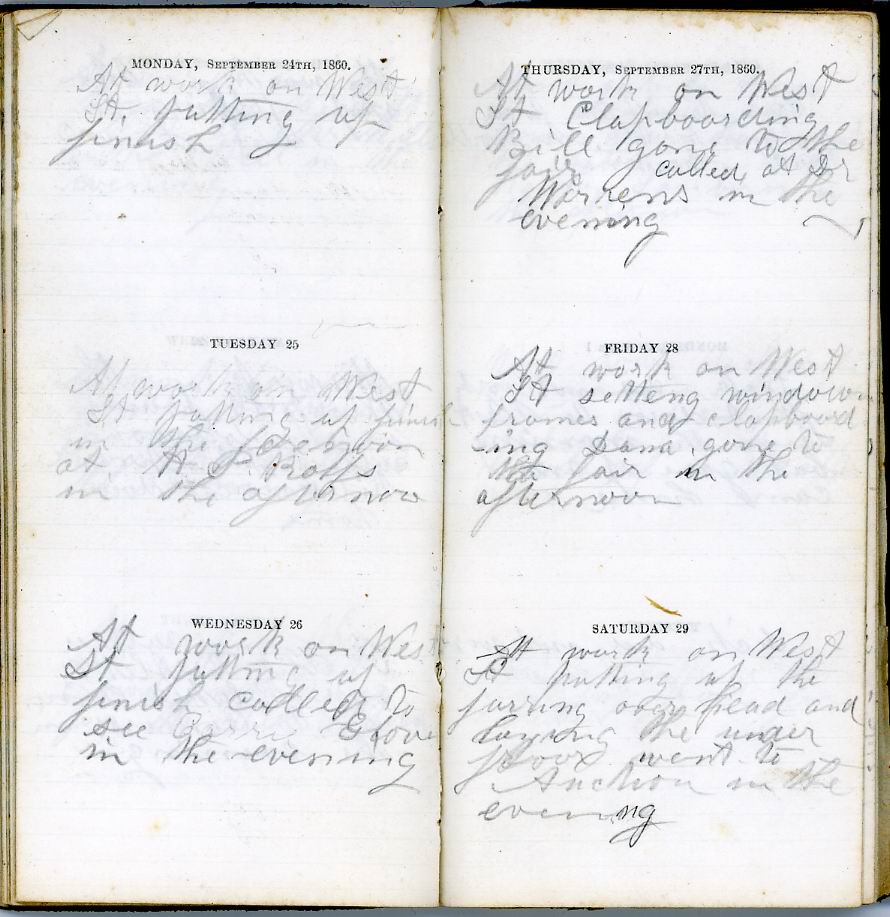 MONDAY, SEPTEMBER 24TH, 1860.
At work on West
St. putting up
finish
TUESDAY 25
At work on West
St putting up finish
in the forenoon
at H Roffs
in the afternoon
WEDNESDAY 26
At work on West
St. putting up
finish called to
see Carrie Glove
in the evening
THURSDAY, SEPTEMBER 27TH, 1860.
At work on West
St Clapboarding
Bill gone to the
fair called at Dr
Warrens in the
evening
FRIDAY 28
At work on West
St setteng window
frames and clapboard
-ing Dana gone to
the fair in the
afternoon
SATURDAY 29
At work on West
St putting up the
furring over head and
laying the under
floor went to
Auction in the
evening